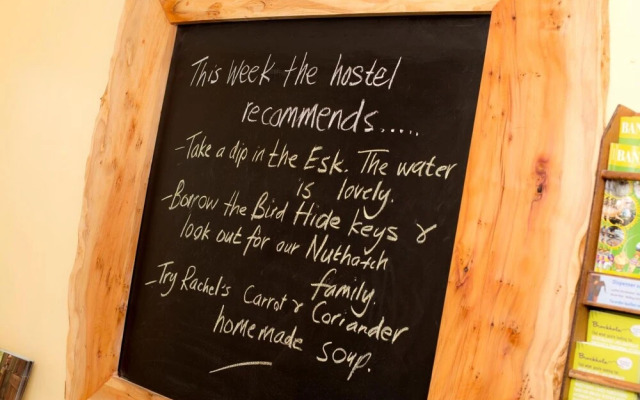 This Week the hostel
recommends.....
- Take a dip in the Esk. The water
is lovely.
- Borrow the Bird Hide keys &
look out for our Nuthatch
family.
- Try Rachel's Carrot & Coriander
homemade soup.